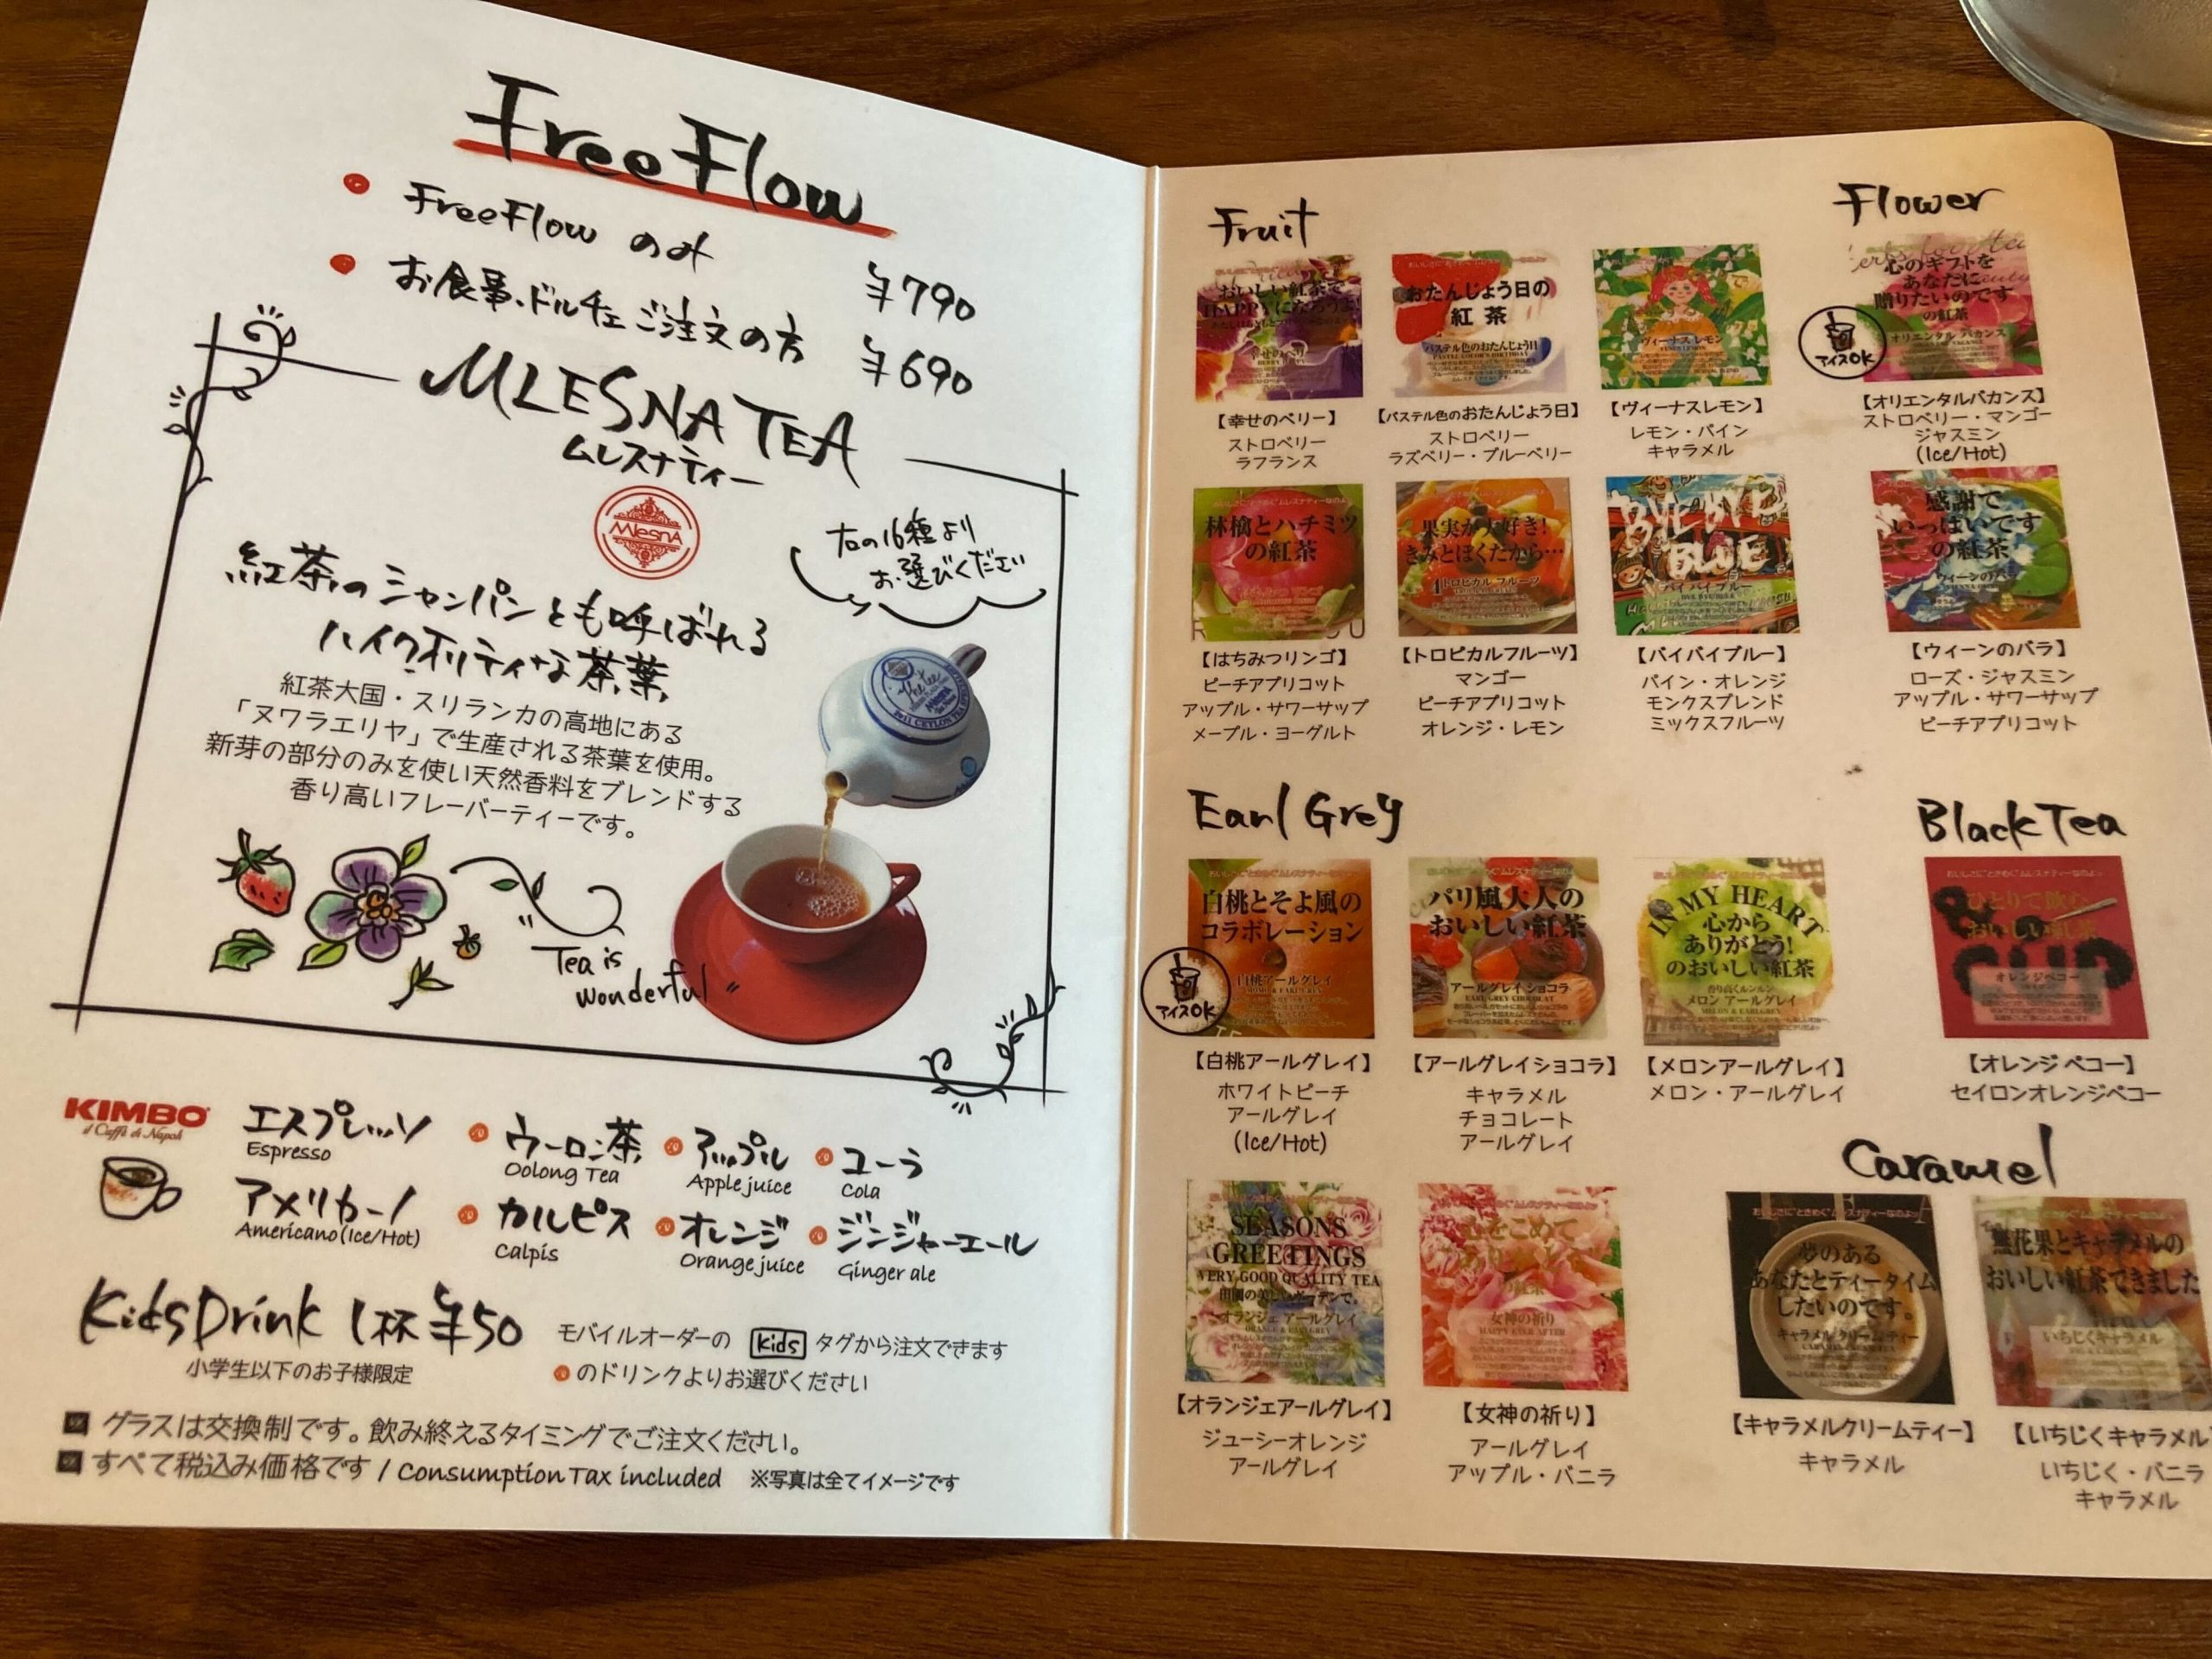 Free Flow
FreeFlow のみ ¥790
お食事、ドルチェ ご注文の方 ¥690
MLESNA TEA
ムレスナティー
MlesnA
右の16種より
お選びください
紅茶のシャンパンとも呼ばれる
ハイクオリティな茶葉
紅茶大国・スリランカの高地にある
「ヌワラエリヤ」で生産される茶葉を使用。
新芽の部分のみを使い天然香料をブレンドする
香り高いフレーバーティーです。
"Tea is
wonderful"
KIMBO
il Caffè di Napoli
エスプレッソ
Espresso
アメリカーノ
Americano(Ice/Hot)
ウーロン茶
Oolong Tea
アップル
Apple juice
コーラ
Cola
カルピス
Calpis
オレンジ
Orange juice
ジンジャーエール
Ginger ale
Kids Drink 1杯 ¥50
小学生以下のお子様限定
モバイルオーダーの Kids タグから注文できます
のドリンクよりお選びください
グラスは交換制です。飲み終えるタイミングでご注文ください。
すべて税込み価格です / Consumption Tax included ※写真は全てイメージです
Fruit
おいしい紅茶で
HAPPYになろうよ!
幸せのベリー
【幸せのベリー】
ストロベリー
ラフランス
おたんじょう日の
紅茶
パステル色のおたんじょう日
【パステル色のおたんじょう日】
ストロベリー
ラズベリー・ブルーベリー
ヴィーナスレモン
【ヴィーナスレモン】
レモン・パイン
キャラメル
林檎とハチミツ
の紅茶
【はちみつリンゴ】
ピーチアプリコット
アップル・サワーサップ
メープル・ヨーグルト
果実が大好き!
きみとぼくだから…
トロピカルフルーツ
【トロピカルフルーツ】
マンゴー
ピーチアプリコット
オレンジ・レモン
BYE BYE
BLUE
バイバイブルー
【バイバイブルー】
パイン・オレンジ
モンクスブレンド
ミックスフルーツ
Flower
心のギフトを
あなたに
贈りたいのです
の紅茶
オリエンタルバカンス
アイスOK
【オリエンタルバカンス】
ストロベリー・マンゴー
ジャスミン
(Ice/Hot)
感謝で
いっぱいです
の紅茶
ウィーンのバラ
【ウィーンのバラ】
ローズ・ジャスミン
アップル・サワーサップ
ピーチアプリコット
Earl Grey
白桃とそよ風の
コラボレーション
白桃アールグレイ
アイスOK
【白桃アールグレイ】
ホワイトピーチ
アールグレイ
(Ice/Hot)
パリ風大人の
おいしい紅茶
アールグレイ ショコラ
EARL GREY CHOCOLAT
【アールグレイショコラ】
キャラメル
チョコレート
アールグレイ
IN MY HEART
心から
ありがとう!
のおいしい紅茶
香り高くルンルン
メロン アールグレイ
MELON & EARLGREY
【メロンアールグレイ】
メロン・アールグレイ
SEASONS
GREETINGS
VERY GOOD QUALITY TEA
オランジェ アールグレイ
ORANGE & EARLGREY
【オランジェアールグレイ】
ジューシーオレンジ
アールグレイ
心をこめて
女神の祈り
HAPPY EVER AFTER
【女神の祈り】
アールグレイ
アップル・バニラ
Black Tea
ひとりで飲む
おいしい紅茶
オレンジペコー
【オレンジ ペコー】
セイロンオレンジペコー
Caramel
夢のある
あなたとティータイム
したいのです。
キャラメルクリームティー
【キャラメルクリームティー】
キャラメル
無花果とキャラメルの
おいしい紅茶できました
いちじくキャラメル
【いちじくキャラメル
いちじく・バニラ
キャラメル